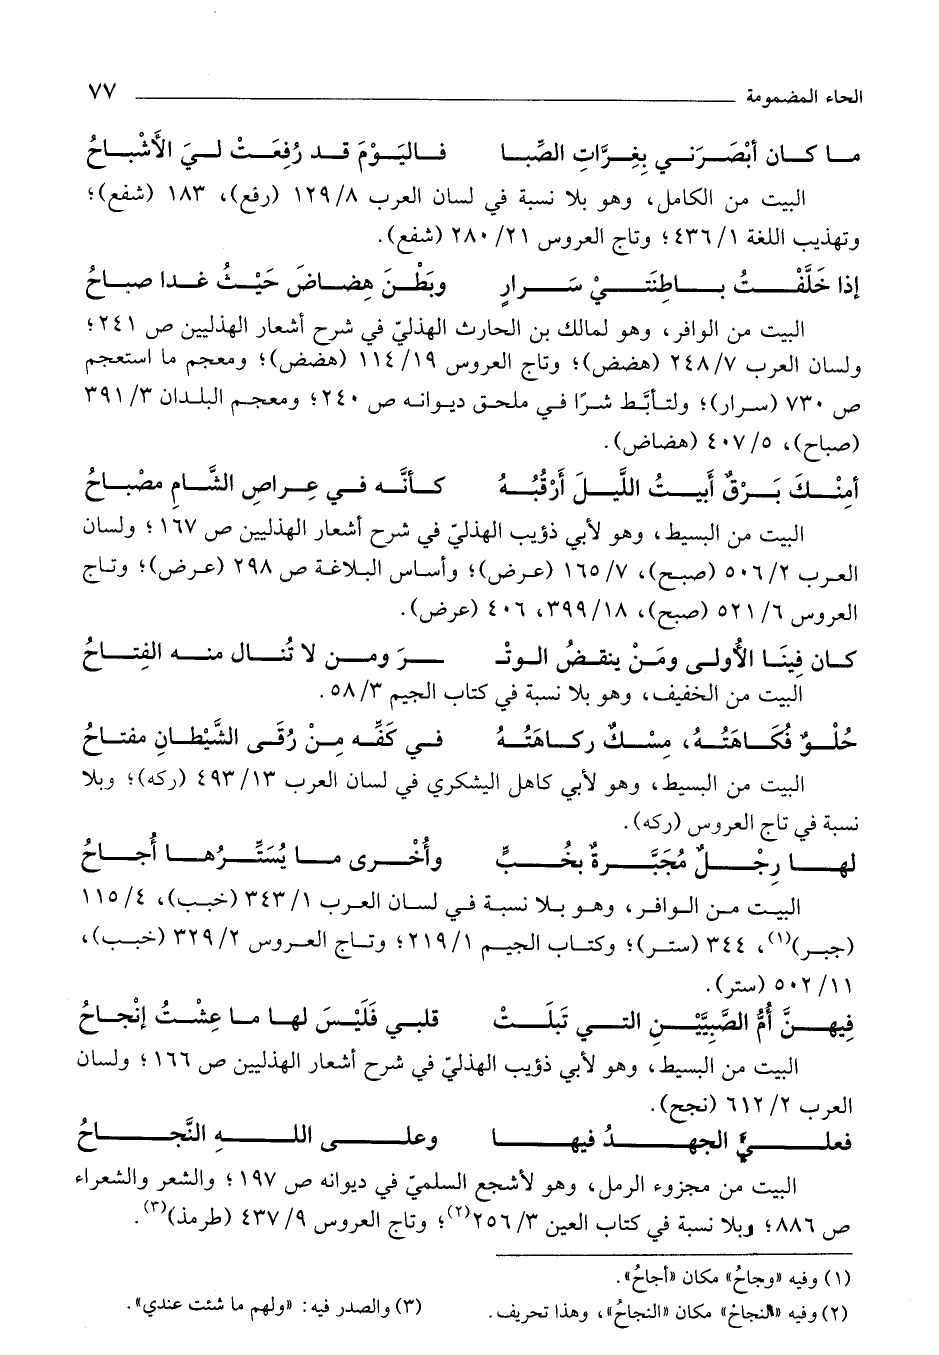 الحاء المضمومة ٧٧
ما كان أَبْصَرَني بِغِرَّاتِ الصِّبا فاليَوْمَ قد رُفِعَتْ ليَ الأَشْباحُ
البيت من الكامل، وهو بلا نسبة في لسان العرب ٨/١٢٩ (رفع)، ١٨٣ (شفع)؛
وتهذيب اللغة ١/٤٣٦؛ وتاج العروس ٢١/٢٨٠ (شفع).
إذا خَلَّفْتُ باطِنَتيْ سَرارٍ وبَطْنَ هِضاضَ حَيْثُ غدا صباحُ
البيت من الوافر، وهو لمالك بن الحارث الهذليّ في شرح أشعار الهذليين ص ٢٤١؛
ولسان العرب ٧/٢٤٨ (هضض)؛ وتاج العروس ١٩/١١٤ (هضض)؛ ومعجم ما استعجم
ص ٧٣٠ (سرار)؛ ولتأبّط شرًا في ملحق ديوانه ص ٢٤٠؛ ومعجم البلدان ٣/٣٩١
(صباح)، ٥/٤٠٧ (هضاض).
أمِنْكَ بَرْقٌ أَبيتُ اللَّيلَ أَرْقُبُهُ كأنَّه في عِراصِ الشَّامِ مصْباحُ
البيت من البسيط، وهو لأبي ذؤيب الهذليّ في شرح أشعار الهذليين ص ١٦٧؛ ولسان
العرب ٢/٥٠٦ (صبح)، ٧/١٦٥ (عرض)؛ وأساس البلاغة ص ٢٩٨ (عرض)؛ وتاج
العروس ٦/٥٢١ (صبح)، ١٨/٣٩٩، ٤٠٦ (عرض).
كان فِينَا الأُولى ومَنْ ينقضُ الوتْـ ـرَ ومن لا تُنال منه الفِتاحُ
البيت من الخفيف، وهو بلا نسبة في كتاب الجيم ٣/٥٨.
حُلْوٌ فُكاهَتُهُ، مِسْكٌ ركاهَتُهُ في كَفِّه مِنْ رُقَى الشَّيْطانِ مفتاحُ
البيت من البسيط، وهو لأبي كاهل اليشكري في لسان العرب ١٣/٤٩٣ (ركه)؛ وبلا
نسبة في تاج العروس (ركه).
لها رِجْلٌ مُجَبَّرةٌ بخُبٍّ وأُخْرى ما يُسَتِّرُها أُجاحُ
البيت من الوافر، وهو بلا نسبة في لسان العرب ١/٣٤٣ (خبب)، ٤/١١٥
(جبر)(١)، ٣٤٤ (ستر)؛ وكتاب الجيم ١/٢١٩؛ وتاج العروس ٢/٣٢٩ (خبب)،
١١/٥٠٢ (ستر).
فِيهنَّ أُمُّ الصَّبِيَّيْنِ التي تَبَلَتْ قلبي فَلَيْسَ لها ما عِشْتُ إنْجاحُ
البيت من البسيط، وهو لأبي ذؤيب الهذليّ في شرح أشعار الهذليين ص ١٦٦؛ ولسان
العرب ٢/٦١٢ (نجح).
فعليَّ الجهدُ فيها وعلى اللهِ النَّجاحُ
البيت من مجزوء الرمل، وهو لأشجع السلميّ في ديوانه ص ١٩٧؛ والشعر والشعراء
ص ٨٨٦؛ وبلا نسبة في كتاب العين ٣/٢٥٦(٢)؛ وتاج العروس ٩/٤٣٧ (طرمذ)(٣).
(١) وفيه «وِجاحُ» مكان «أجاحُ».
(٢) وفيه «النجاحْ» مكان «النجاحُ»، وهذا تحريف. (٣) والصدر فيه: «ولهم ما شئت عندي».